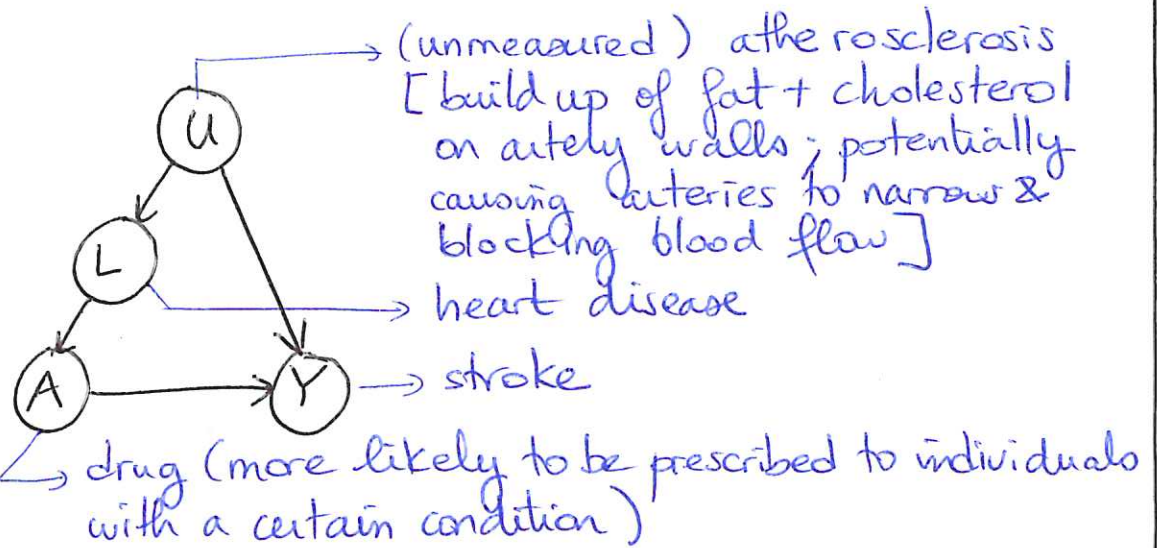 (unmeasured) atherosclerosis
[build up of fat + cholesterol
on artery walls; potentially
causing arteries to narrow &
blocking blood flow]
U
L
heart disease
A
Y
stroke
drug (more likely to be prescribed to individuals
with a certain condition)